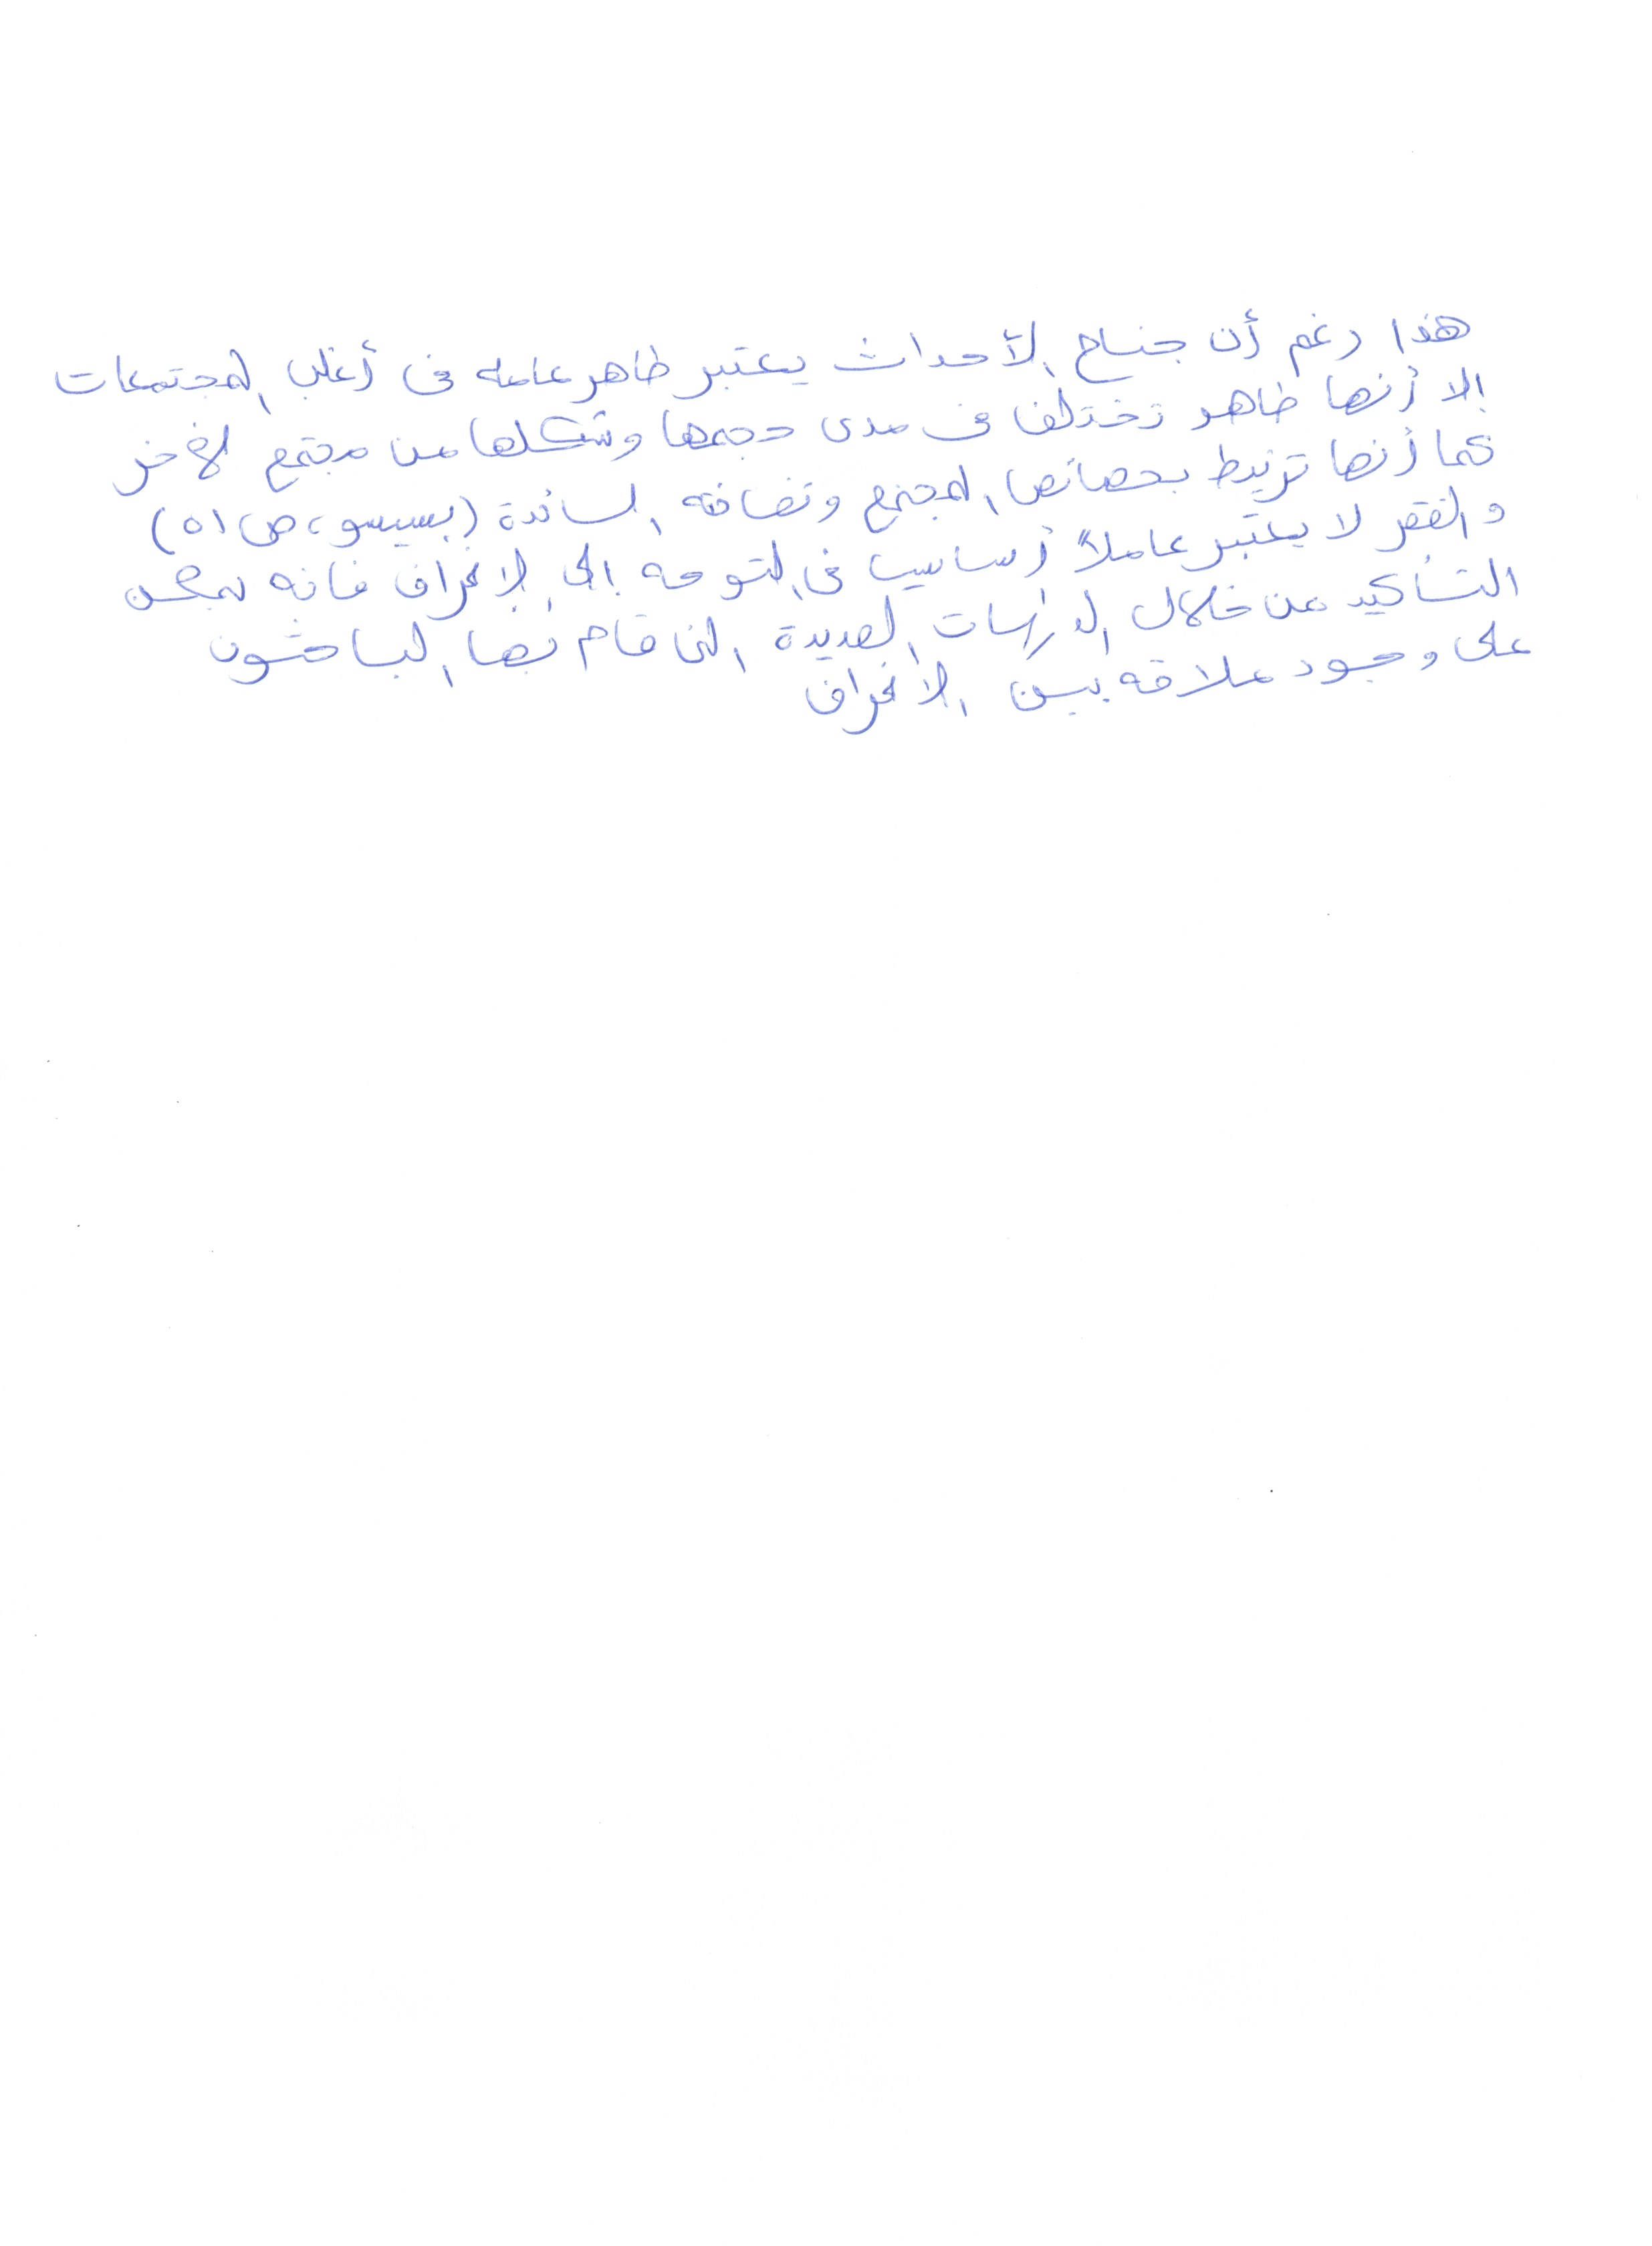 هذا رغم أن جناح الأحداث يعتبر ظاهر عامه في أغلب المجتمعات
إلا أنها ظاهر تختلف في مدى حجمها وشكلها من مجتمع لآخر
كما أنها ترتبط بخصائص المجتمع وثقافته السائدة (بسيسو، ص ٥١)
والفقر لا يعتبر عاملاً أساسيا في التوجه إلى الإنحراف فانه يمكن
التأكيد من خلال الدراسات العديدة التي قام بها الباحثون
على وجود علاقه بين الانحراف